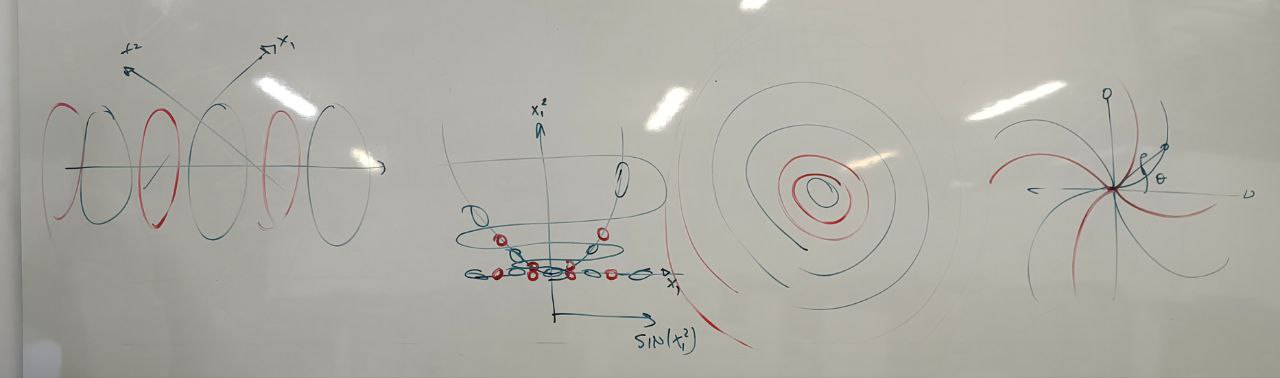 x²
x₁
x₁²
x₁
SIN(x₁²)
θ